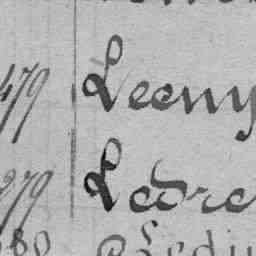 479 Leeny
279 Ledre
Ledu